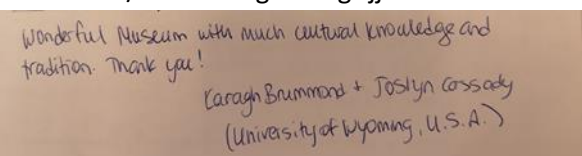 Wonderful Museum with much cultural knowledge and
tradition. Thank you!
Karagh Brummond + Joslyn Cassady
(University of Wyoming, U.S.A.)